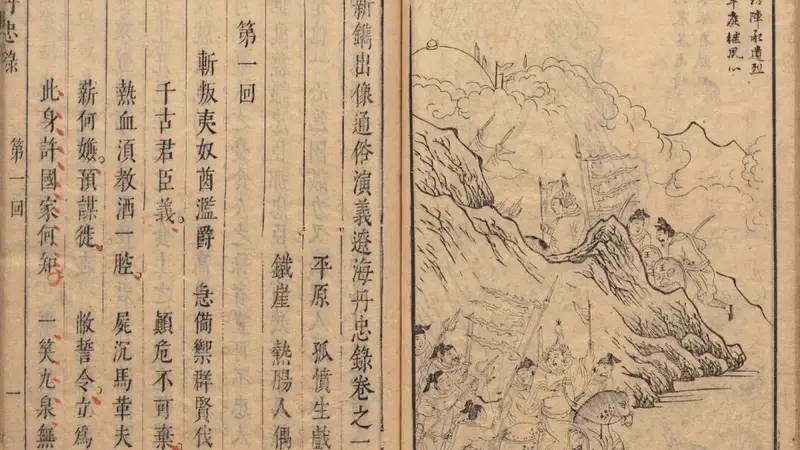 陣永遺烈
新鐫出像通俗演義遼海丹忠錄卷之一
平原人 孤憤生戲
鐵崖 熱腸人偶
第一回
斬叛夷奴酋濫爵 急備禦群賢伐
千古君臣義。 顛危不可棄。
熱血湏教洒一腔。 屍沉馬革夫
薪何嫌。預謀徙。 誓令。立為
此身許國家何知 一笑九泉無
丹忠錄 第一回 一